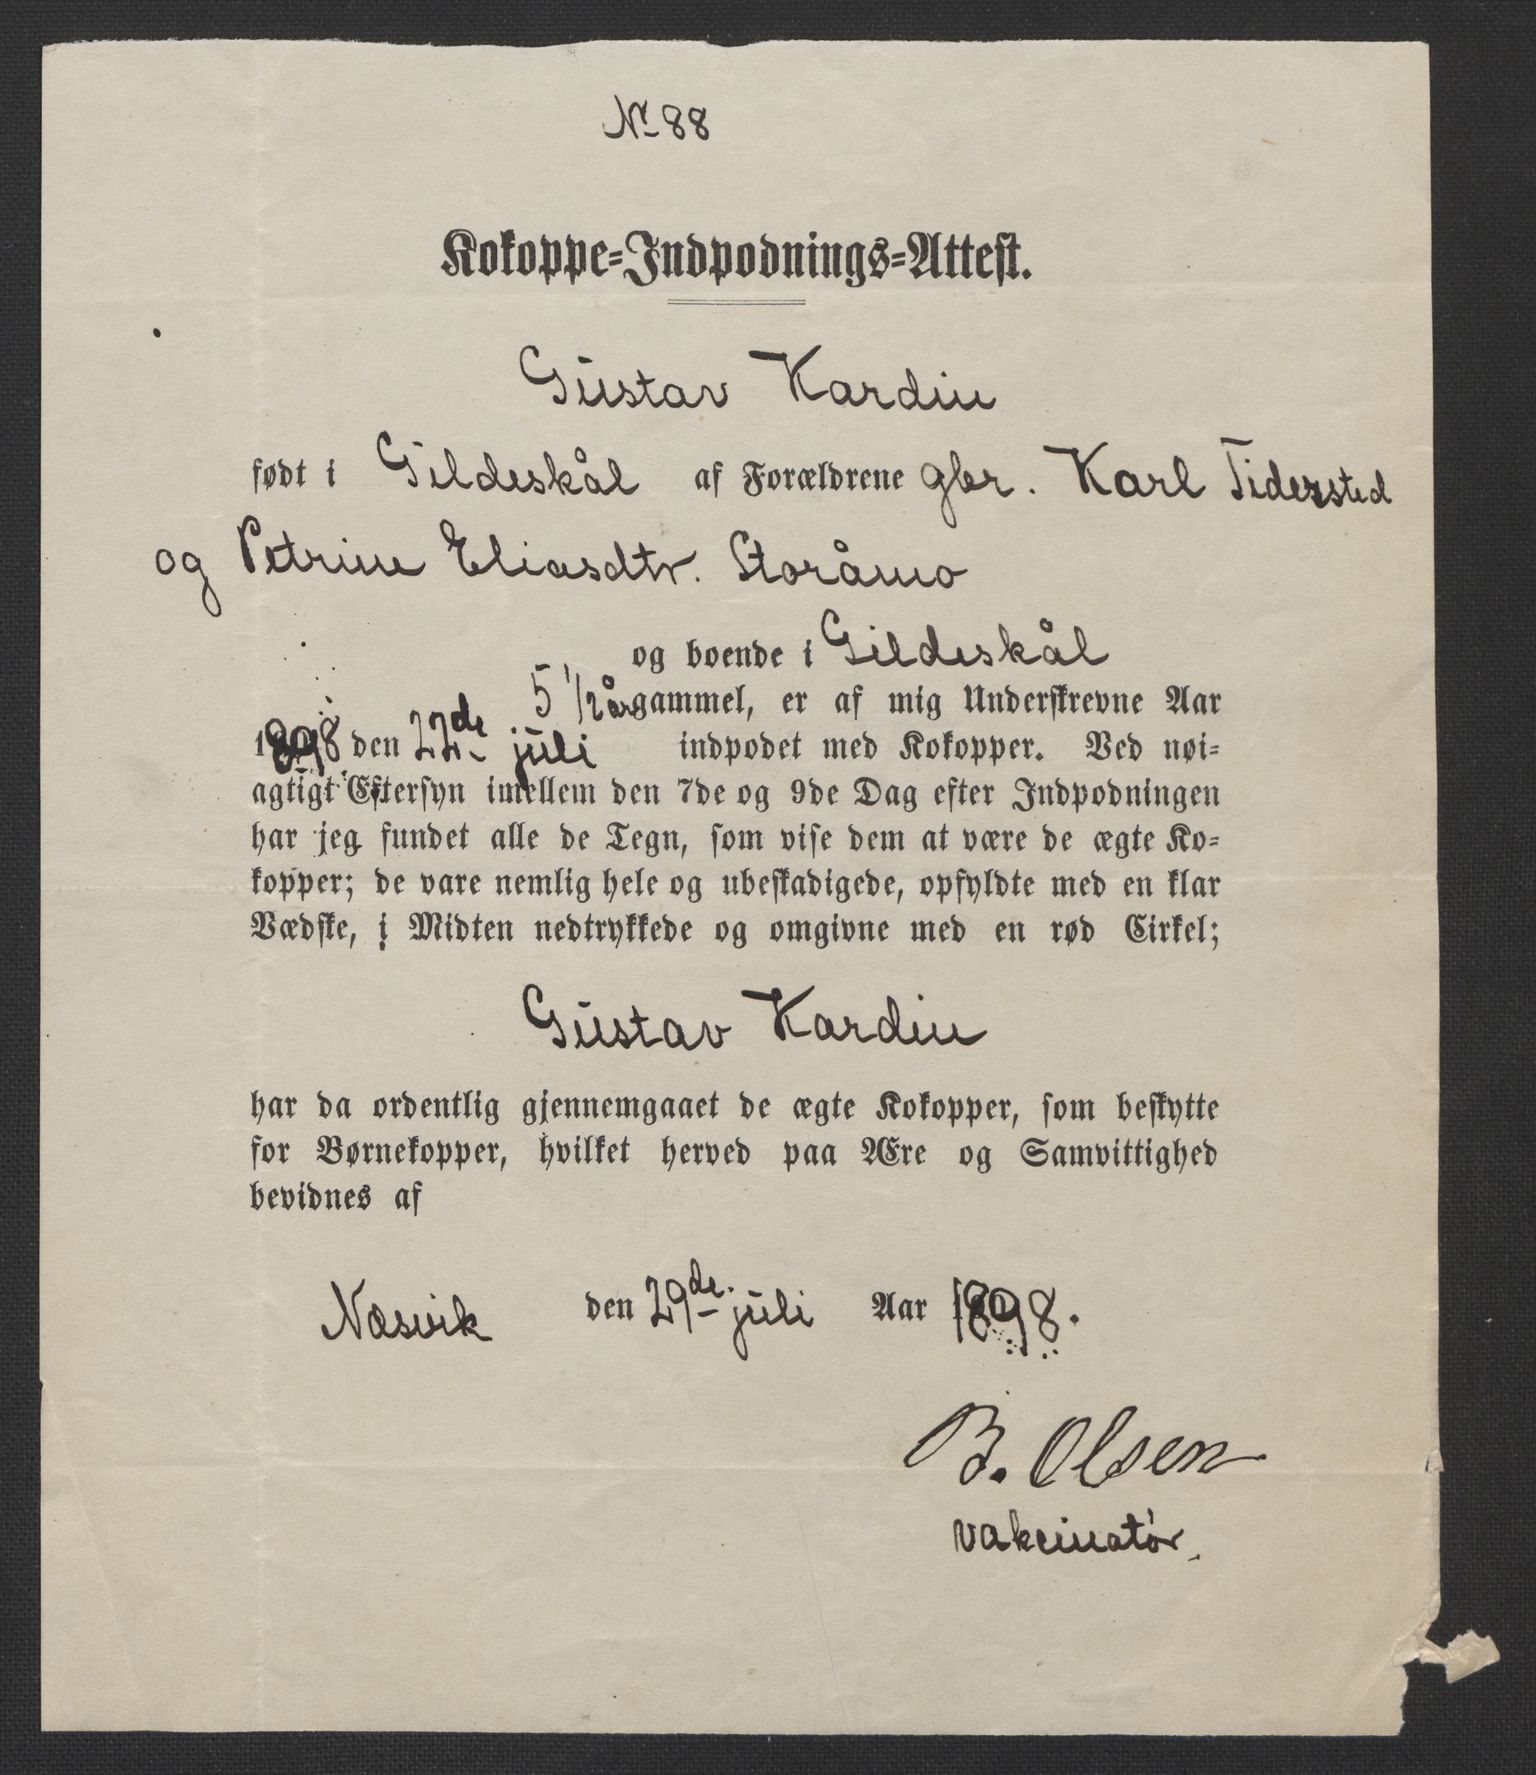 No 88
Kokoppe-Indpodnings-Attest.
Gustav Kardin
født i Gildeskål af Forældrene gbr. Karl Tidersted
og Petrine Eliasdtr. Storåmo
og boende i Gildeskål
5 1/2 år gammel, er af mig Underskrevne Aar
1898 den 22de juli indpodet med Kokopper. Ved nøi-
agtigt Eftersyn imellem den 7de og 9de Dag efter Indpodningen
har jeg fundet alle de Tegn, som vise dem at være de ægte Ko-
kopper; de vare nemlig hele og ubeskadigede, opfyldte med en klar
Vædske, i Midten nedtrykkede og omgivne med en rød Cirkel;
Gustav Kardin
har da ordentlig gjennemgaaet de ægte Kokopper, som beskytte
for Børnekopper, hvilket herved paa Ære og Samvittighed
bevidnes af
Næsvik den 29de juli Aar 1898.
B. Olsen
vakcinatør.